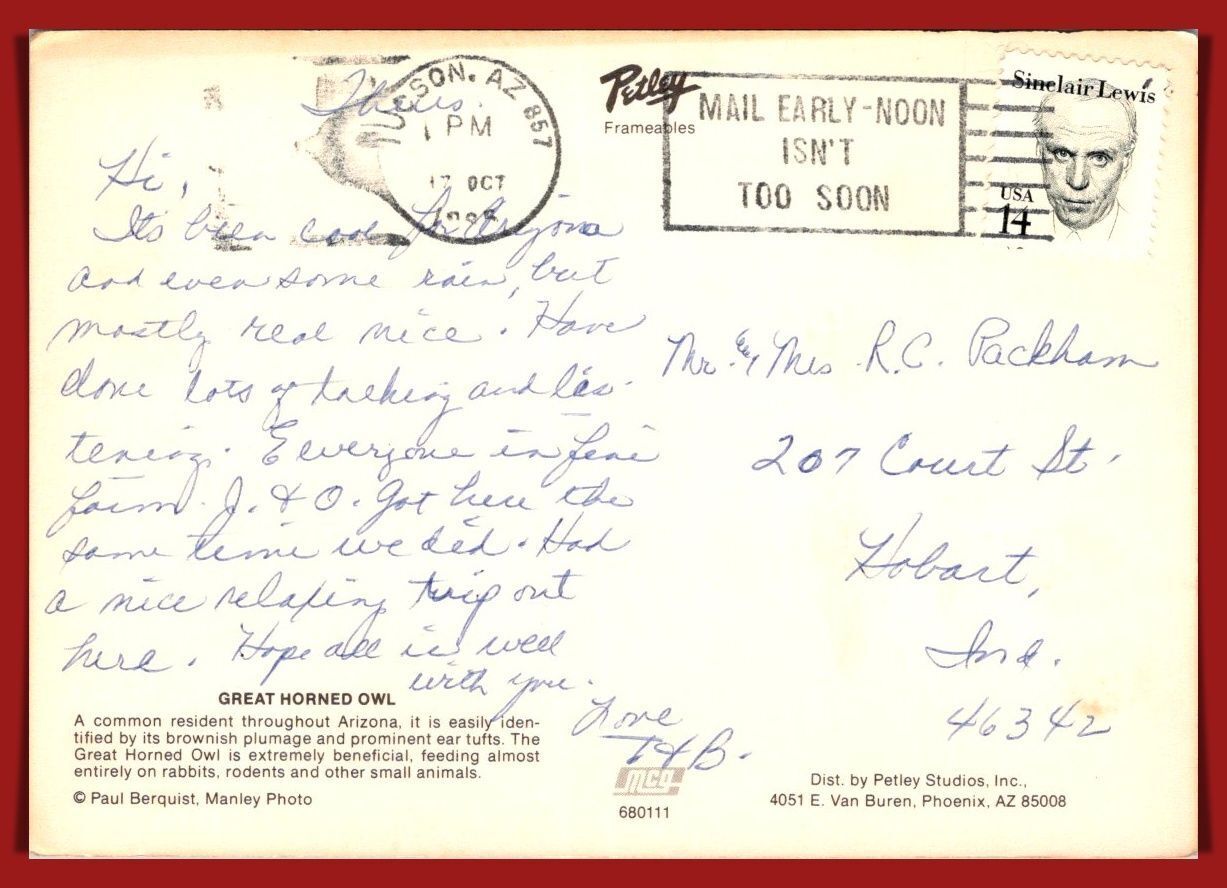 Thurs.
TUCSON, AZ 857
1 PM
17 OCT
Petley
Frameables
MAIL EARLY-NOON
ISN'T
TOO SOON
Sinclair Lewis
USA
14
Hi,
Its been cool for Arizona
and even some rain, but
mostly real nice. Have
done lots of talking and lis-
tening. Everyone in fine
form. J. & O. got here the
same time we did. Had
a nice relaxing trip out
here. Hope all is well
with you.
Love
H B.
Mr. & Mrs R.C. Packham
207 Court St.
Hobart,
Ind.
46342
GREAT HORNED OWL
A common resident throughout Arizona, it is easily iden-
tified by its brownish plumage and prominent ear tufts. The
Great Horned Owl is extremely beneficial, feeding almost
entirely on rabbits, rodents and other small animals.
© Paul Berquist, Manley Photo
mcg
680111
Dist. by Petley Studios, Inc.,
4051 E. Van Buren, Phoenix, AZ 85008